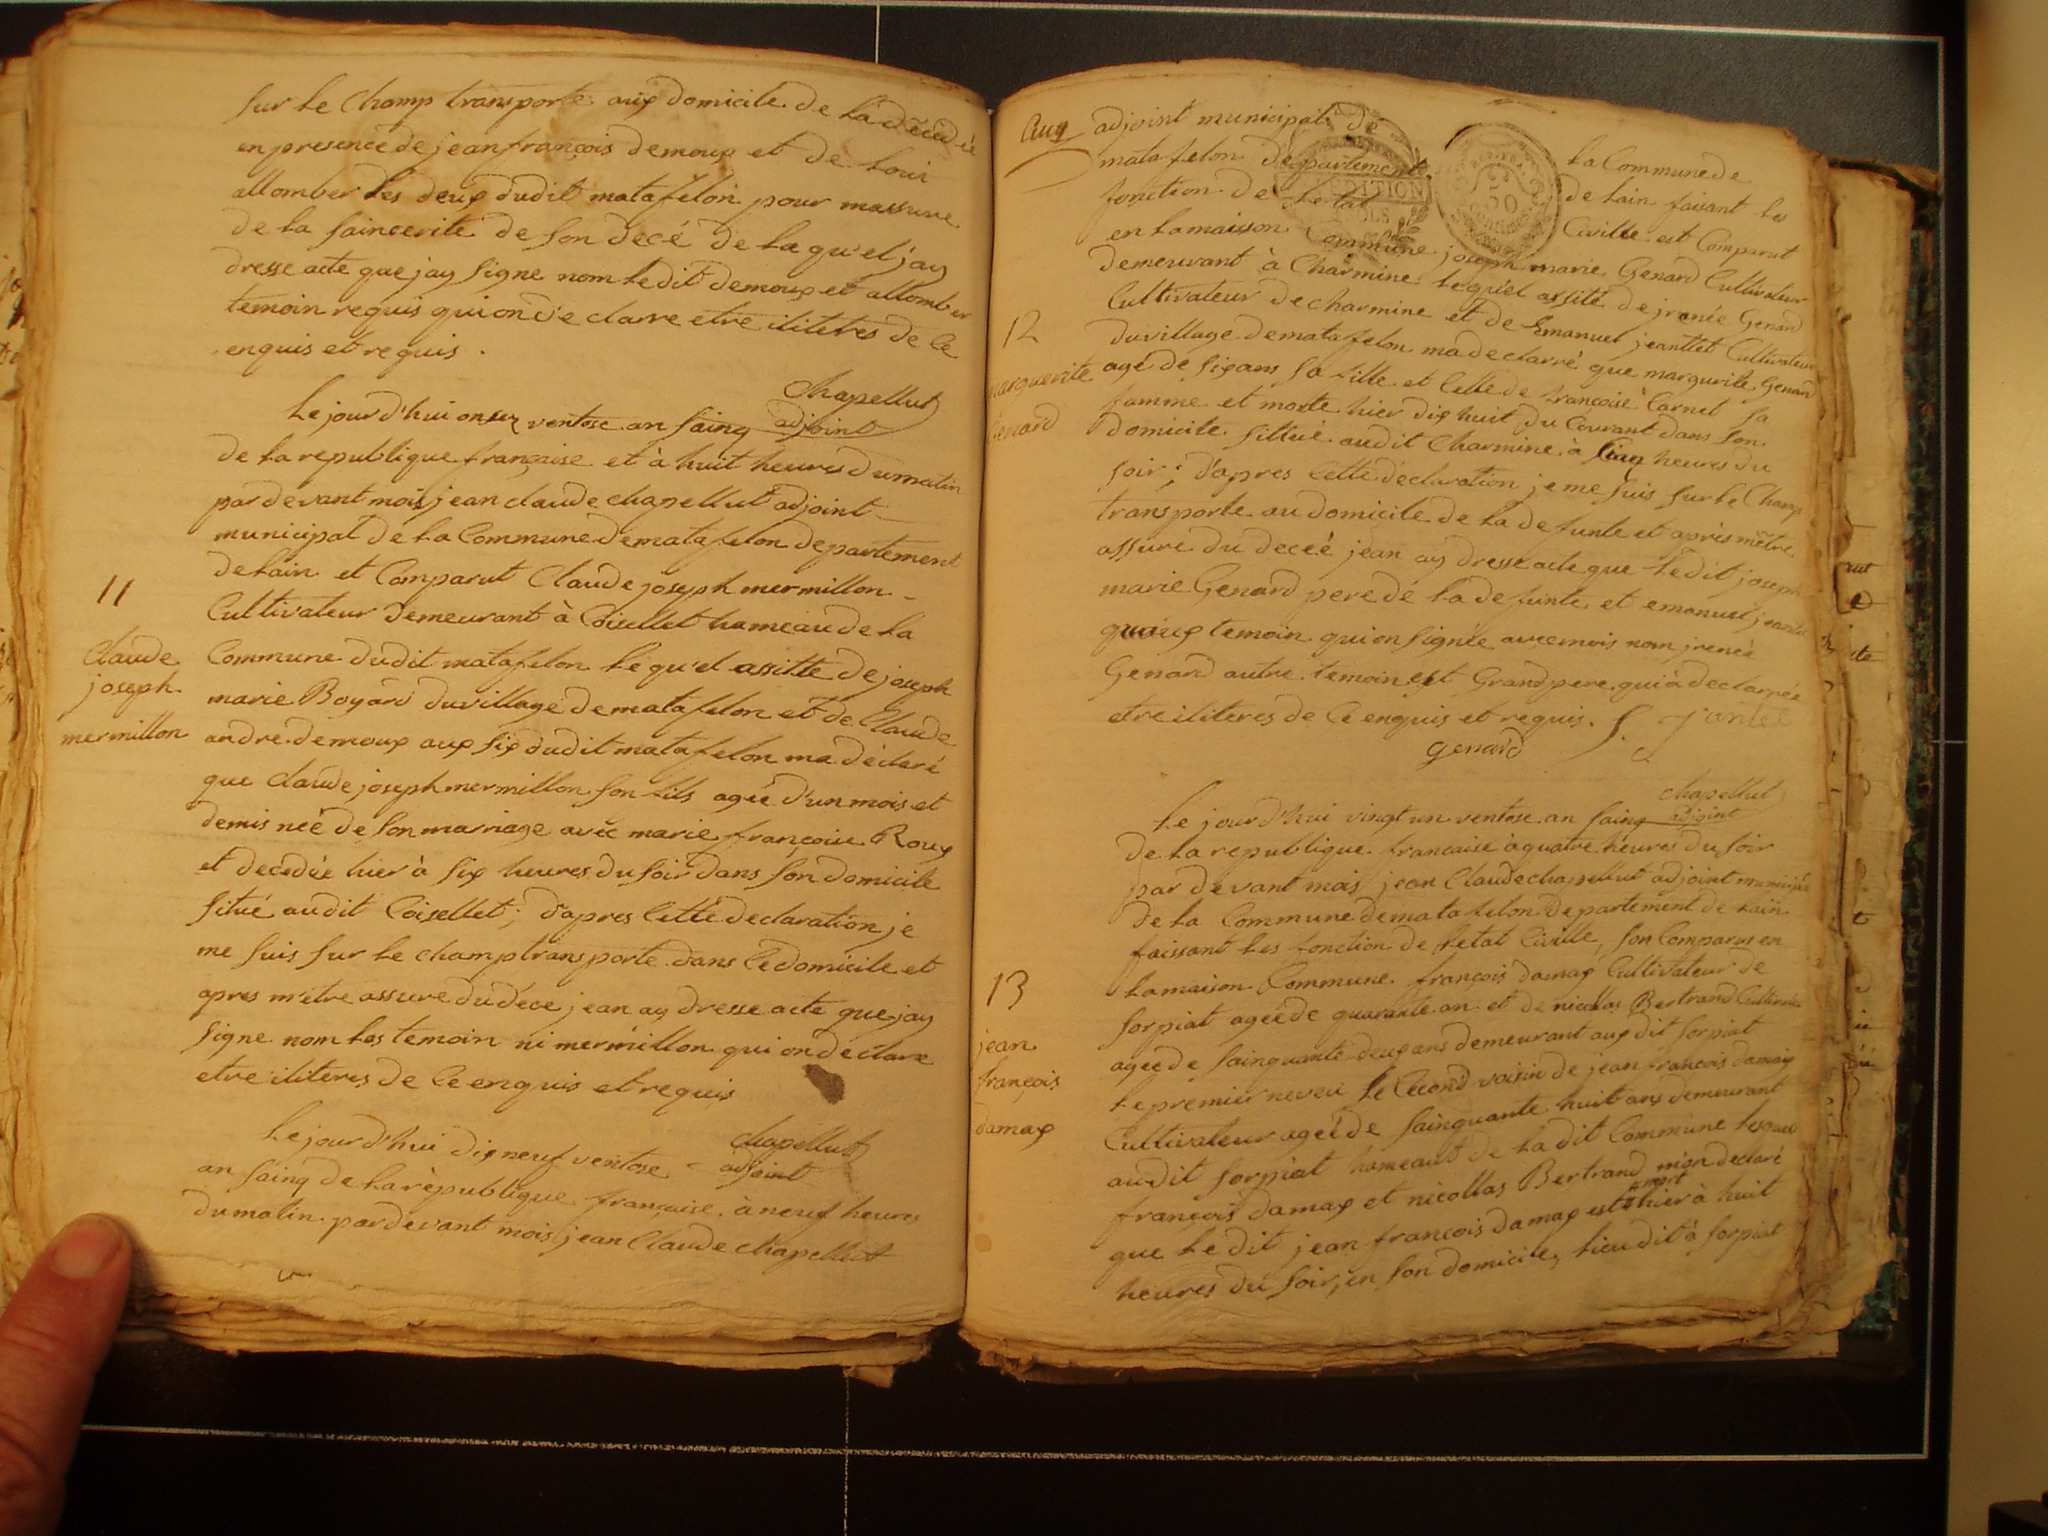 sur le Champ transporte aux domicile de la décédée
en presence de jean françois demoux et de loui
allomber les deux dudit matafelon pour massure
de la saincerite de son decé de la qu'el jay
dresse acte que jay signe nom ledit demoux et allomber
temoin requis qui on de clarre etre iliteres de ce
enquis et requis.
Chapellut
adjoint
le jour d'hui onze ventose an sainq
de la republique française et à huit heures du matin
par devant mois jean claude chapellut adjoint
municipal de la Commune de matafelon departement
de lain et Comparut Claude joseph mermillon
11
Cultivateur demeurant à Coisellet hameau de la
Claude
joseph
mermillon
Commune dudit matafelon lequ'el assitte de joseph
marie Boyard du village de matafelon et de Claude
andre demoux aux six dudit matafelon ma déclaré
que Claude joseph mermillon son fils agée d'un mois et
demis neé de son marriage avéc marie françoise Roux
et decedée hier à six heures du soir dans son domicile
situé audit Coisellet; d'apres Cette declaration je
me suis sur le champ transporte dans Ce domicile et
apres m'etre assure du déce jean ay dresse acte que jay
signe nom les temoin ni mermillon qui on déclare
etre iliteres de Ce enquis et requis
Chapellut
adjoint
le jour d'hui dix neuf ventose
an sainq de la république française à neuf heures
du matin par devant mois jean Claude chapellut
adjoint municipal de la Commune de
matafelon departement de lain faisant les
fonction de letat Civille est Comparut
en la maison Commune joseph marie Genard Cultivateur
demeurant à Charmine lequel assité de jrenée Genard
Cultivateur de charmine et de Emanuel jeantlet Cultivateur
12
marguerite
Genard
du village de matafelon ma declarré que margurite Genard
agé de six ans sa fille et Celle de françoise Carnet sa
famme et morte hier dix huit du Courant dans son
domicile sittué audit Charmine à sinq heures du
soir; d'apres Cette déclaration je me suis sur le Champ
transporte au domicile de la defunte et après mêtre
assure du deceé jean ay dresse acte que ledit joseph
marie Genard pere de la defunte et emanuel
temoin qui on signée avec mois nom jreneé
Genard autre temoin est Grand pere qui à declarrée
etre iliteres de Ce enquis et requis. J. jantet
Genard
Chapellut
adjoint
le jour d'hui vingt un ventose an sainq
de la republique francaise à quatre heures du soir
par devant mois jean Claude chapellut adjoint municipal
de la Commune de matafelon departement de lain
faissant les fonction de letat Civille, son Comparus en
13
jean
françois
damax
la maison Commune françois damax Cultivateur de
sorpiat ageé de quarante an et de nicollas Bertrand Cultivateur
ageé de sainquante deux ans demeurant aux dit sorpiat
le premier neveu le second voisin de jean francois damax
Cultivateur ageé de sainquante huit ans demeurant
audit sorpiat hameaut de la dit Commune lesquel
françois damax et nicollas Bertrand m'on declaré
que ledit jean francois damax est mort hier à huit
heures du soir, en son domicile, lieu dit à sorpiat